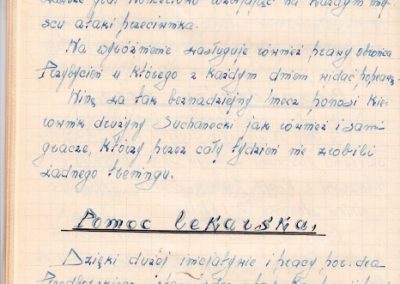 na każdym miej-
scu ataki przeciwnika.
Na wyróżnienie zasługuje również prawy obrońca
Przybycień u którego z każdym dniem widać poprawę.
Winę za tak beznadziejny mecz ponosi Kie-
rownik drużyny Suchanecki jak również i sami
gracze, którzy przez cały tydzień nie zrobili
żadnego treningu.
Pomoc lekarska,
Dzięki dużej inicjatywie i pracy por. dra